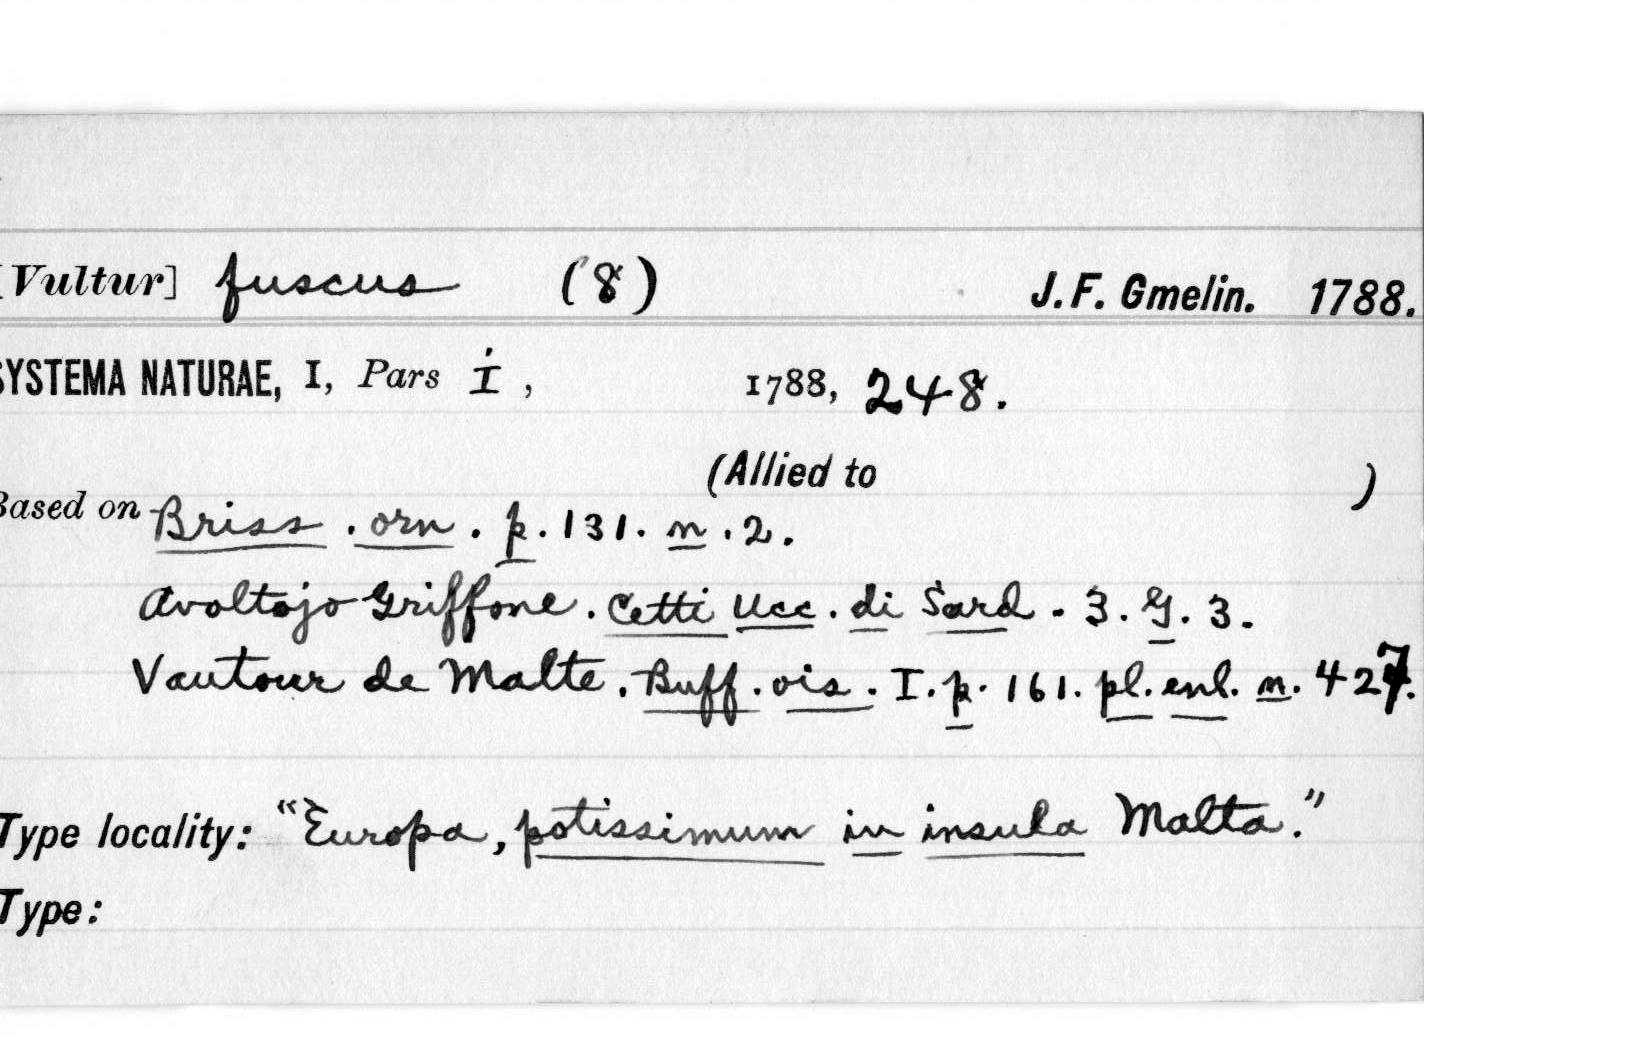 [Vultur] fuscus (8) J. F. Gmelin. 1788.
SYSTEMA NATURAE, I, Pars I, 1788, 248.
(Allied to )
Based on Briss. orn. p. 131. n. 2.
Avoltojo Griffone. Cetti Ucc. di Sard. 3. G. 3.
Vautour de Malte. Buff. ois. I. p. 161. pl. enl. n. 427.
Type locality: "Europa, potissimum in insula Malta."
Type: